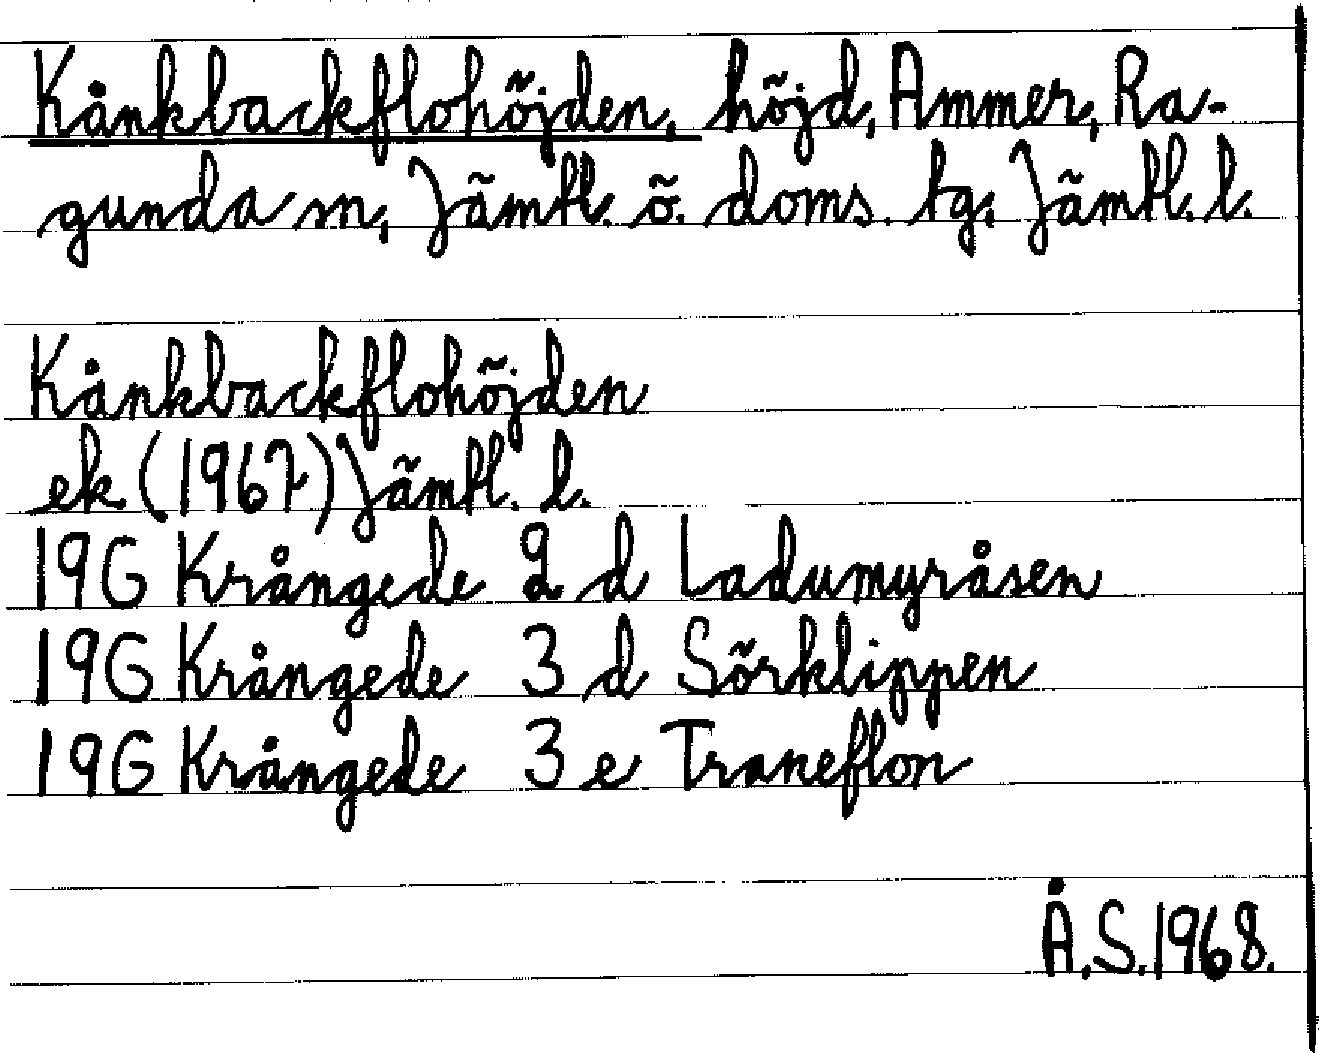 Kånkbackflohöjden, höjd, Ammer, Ra-
gunda sn, Jämtl. ö. doms. tg. Jämtl. l.
Kånkbackflohöjden
ek (1967) Jämtl. l.
19G Krångede 2 d Ladumyråsen
19G Krångede 3 d Sörklippen
19G Krångede 3 e Traneflon
Å.S. 1968.